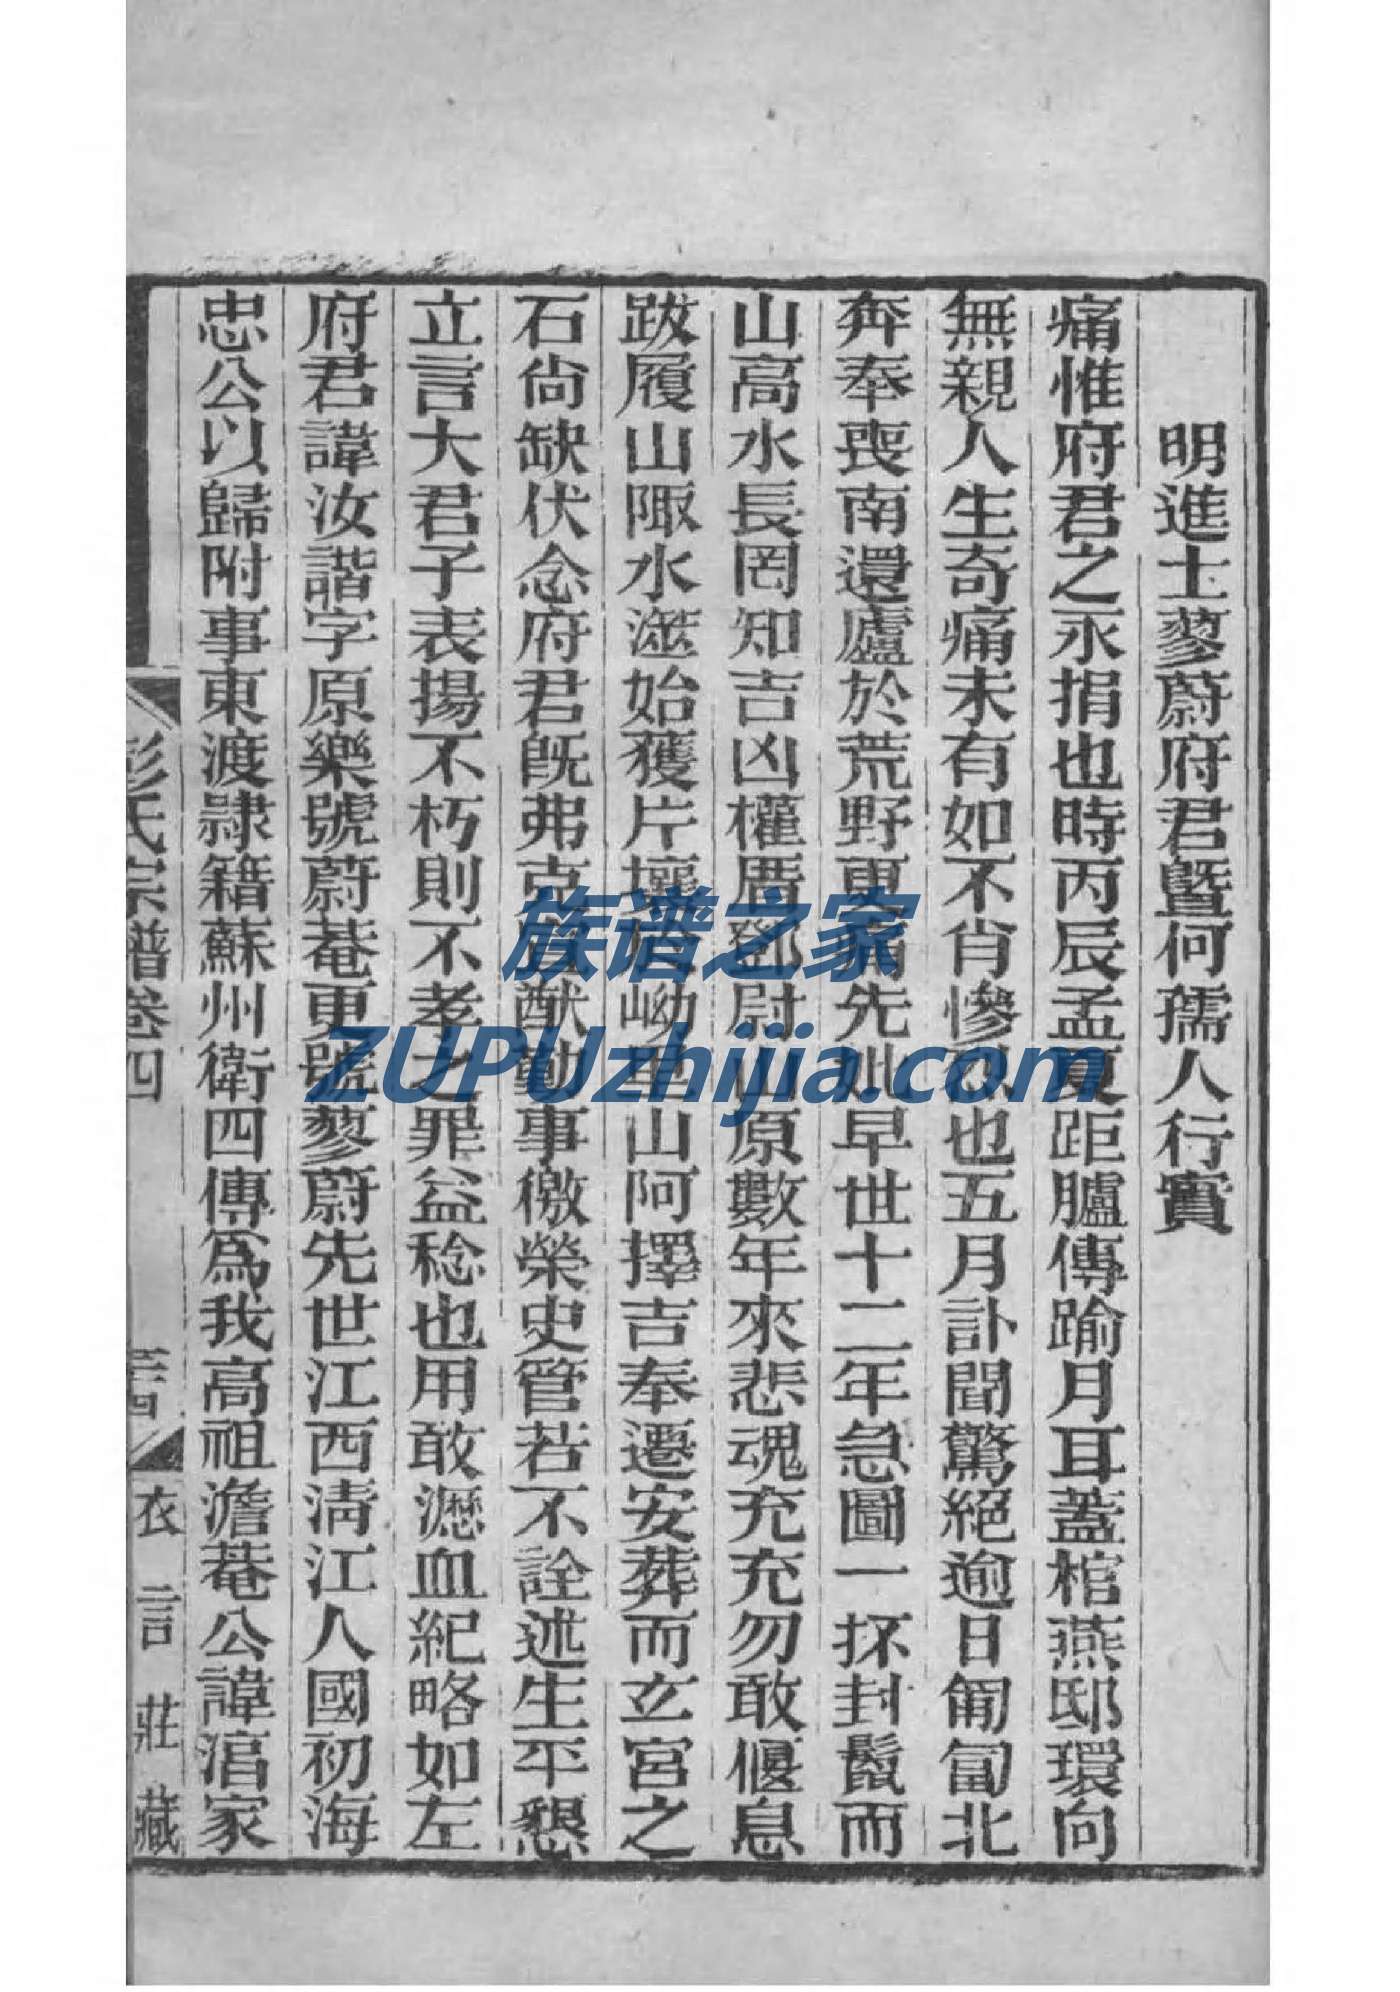 明進士蓼蔚府君暨何孺人行實
痛惟府君之永捐也時丙辰孟夏距臚傳踰月耳蓋棺燕邸環向
無親人生奇痛未有如不肖慘烈也五月訃聞驚絕逾日匍匐北
奔奉喪南還廬於荒野更痛先妣早世十二年急圖一抔封鬣而
山高水長罔知吉凶權厝鄧尉山原數年來悲魂充充勿敢偃息
跋履山陬水澨始獲片壤於岰里山阿擇吉奉遷安葬而立宮之
石尚缺伏念府君旣弗克猷勤事徼榮史管若不詮述生平懇
立言大君子表揚不朽則不孝之罪益稔也用敢瀝血紀略如左
府君諱汝諧字原樂號蔚菴更號蓼蔚先世江西清江人國初海
忠公以歸附事東渡隷籍蘇州衛四傳爲我高祖澹菴公諱淯家
彭氏宗譜卷四
三四
衣言莊藏
族谱之家
ZUPUzhijia.com